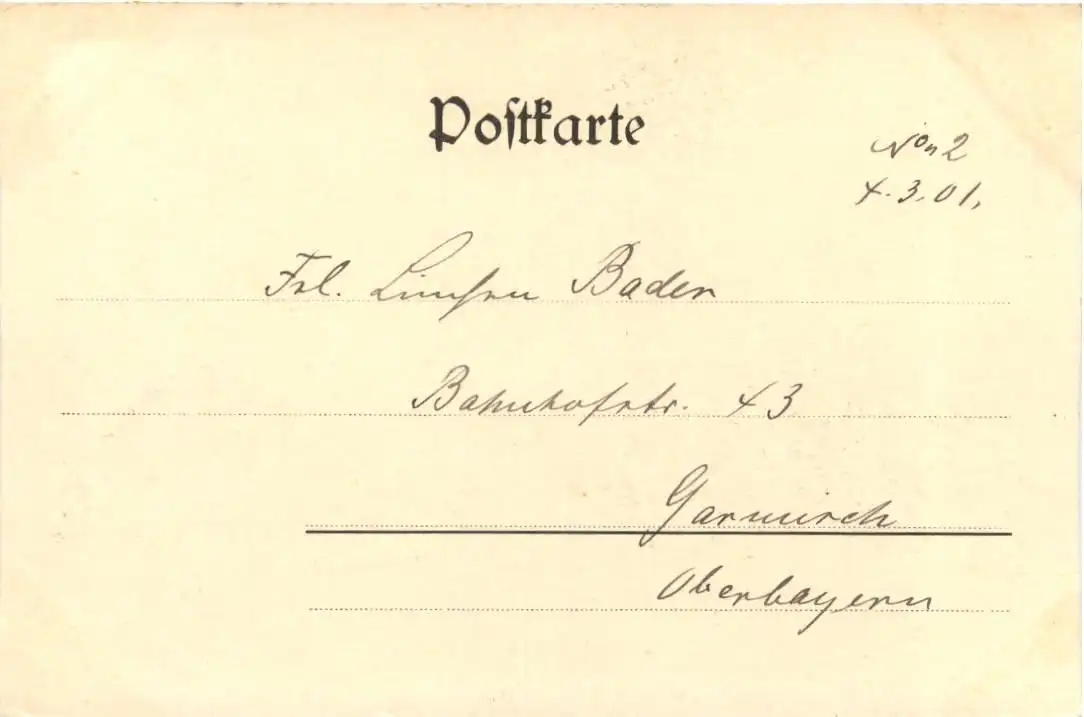 Postkarte
No 2
4.3.01.
Frl. Baden
Bahnhofstr. 43
Garmisch
Oberbayern